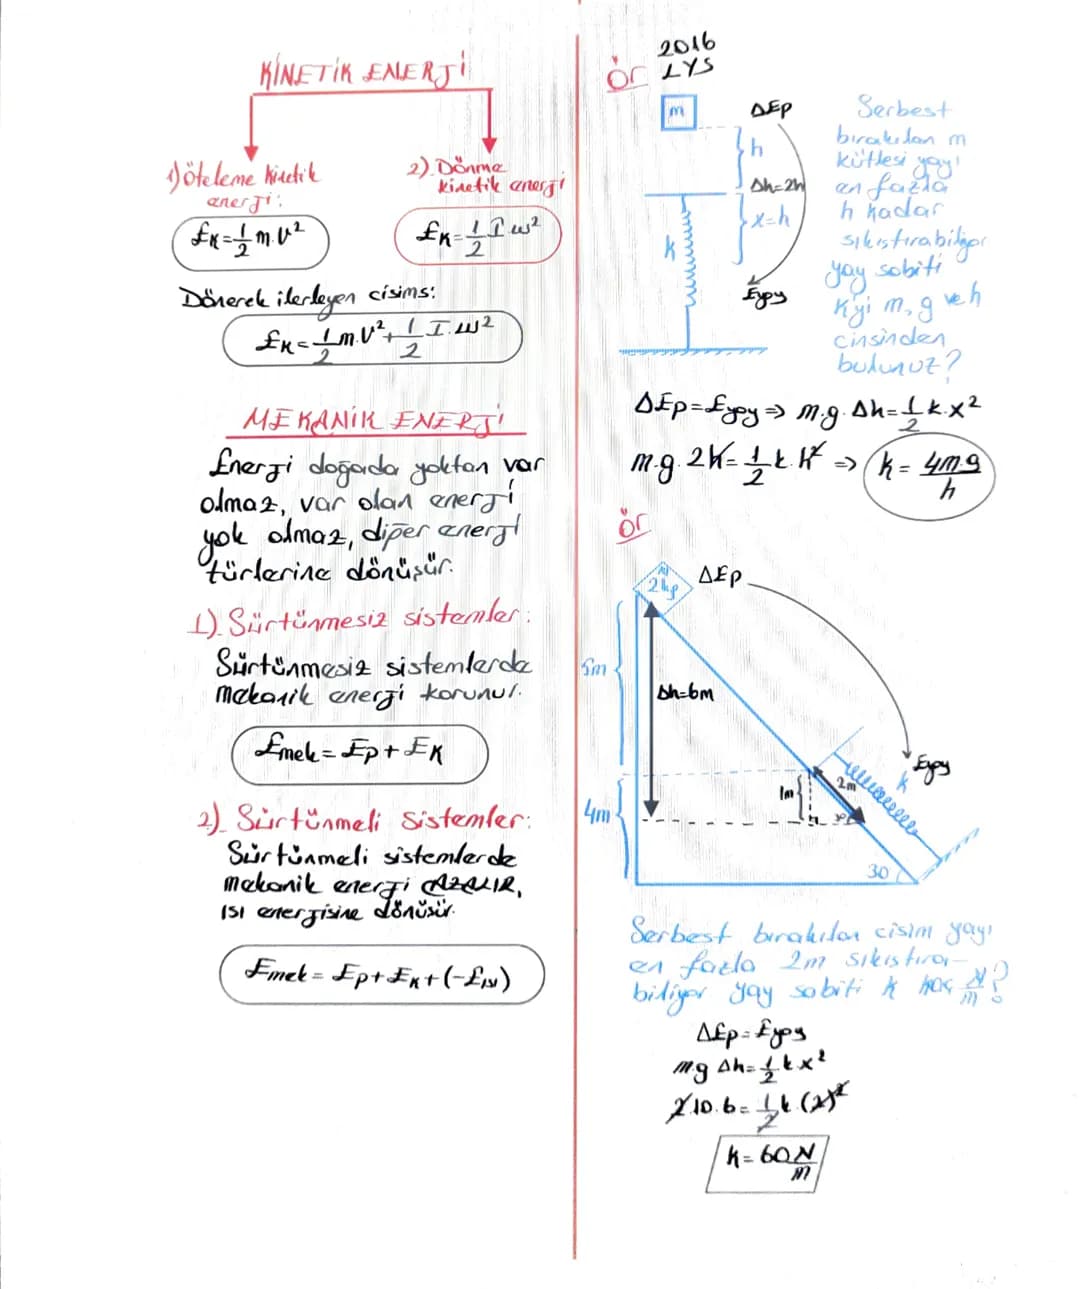 KİNETİK ENERJİ
1) Öteleme kinetik
enerji:
EK=1/2 m.V²
2). Dönme
kinetik enerji
EK=1/2 I.w²
Dönerek ilerleyen cisims:
EK=1/2 m.V²+1/2 I.w²
MEKANİK ENERJİ
Enerji doğada yoktan var
olmaz, var olan enerji
yok olmaz, diğer enerji
türlerine dönüşür.
1). Sürtünmesiz sistemler:
Sürtünmesiz sistemlerde
mekanik enerji korunur.
Emek = Ep + EK
2). Sürtünmeli Sistemler:
Sürtünmeli sistemlerde
mekanik enerji AZALIR,
ısı enerjisine dönüşür.
Emek = Ep+EK+(-Eısı)
ör 2016
LYS
m
ΔEp
h
Δh=2h
x=h
k
Eyay
Serbest
bırakılan m
kütlesi yayı
en fazla
h kadar
sıkıştırabiliyor
yay sabiti
k'yi m, g ve h
cinsinden
bulunuz?
ΔEp=Eyay ⇒ m.g.Δh=1/2 k.x²
m.g.2h=1/2 k.h² ⇒ k = 4m.g/h
ör
2kg
ΔEp
5m
Δh=6m
Eyay
k
2m
1m
4m
30
Serbest bırakılan cisim yayı
en fazla 2m sıkıştıra-
biliyor yay sabiti k kaç N/m?
ΔEp=Eyay
mg Δh=1/2 k x²
2.10.6=1/2 k.(2)²
k = 60 N/m